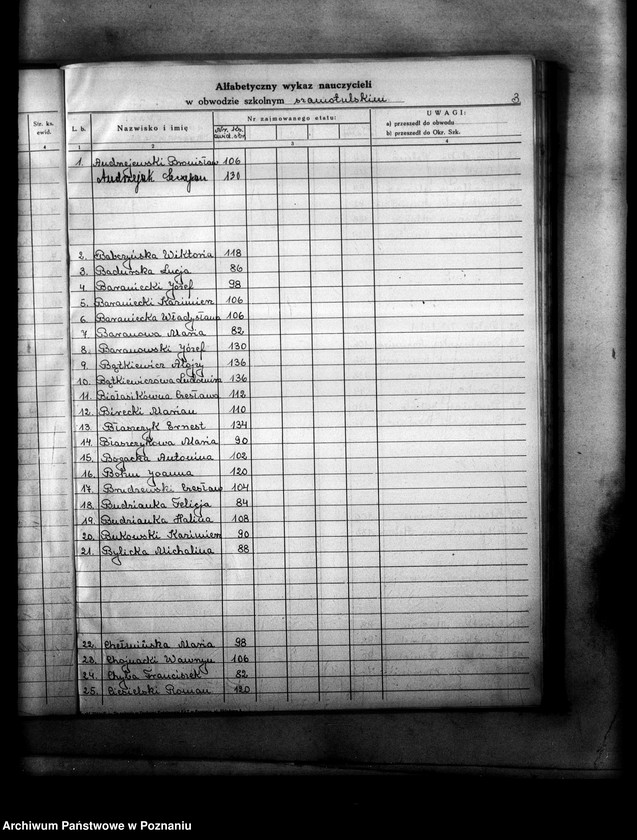 Alfabetyczny wykaz nauczycieli
w obwodzie szkolnym szamotulskim 3
Str. ks. ewid.
L. b. Nazwisko i imię Nr zajmowanego etatu: UWAGI:
a) przeszedł do obwodu
b) przeszedł do Okr. Szk.
4 1 2 3 4
1. Andrzejewski Bronisław 106
Andrzejak 130
2. Babczyńska Wiktoria 118
3. Baduńska Łucja 86
4. Baraniecki Józef 98
5. Baraniecki Kazimierz 106
6. Baraniecka Władysława 106
7 Baranowa Maria 82
8. Baranowski Józef 130
9. Bątkiewicz Alojzy 136
10. Bątkiewiczowa Ludomira 136
11. Białasikówna Czesława 112
12. Birecki Marian 110
13. Błaszczyk Ernest 134
14. Błaszczykowa Maria 90
15. Bogacka Antonina 102
16. Böhm Joanna 120
17. Brudzewski Czesław 104
18. Budzianka Felicja 84
19. Budzianka Halina 108
20. Bukowski Kazimierz 90
21. Bylicka Michalina 88
22. Chełmińska Maria 98
23. Chojnacki Wawrzyn 106
24. Chyba Franciszek 82
25. Ciesielski Roman 120
Archiwum Państwowe w Poznaniu